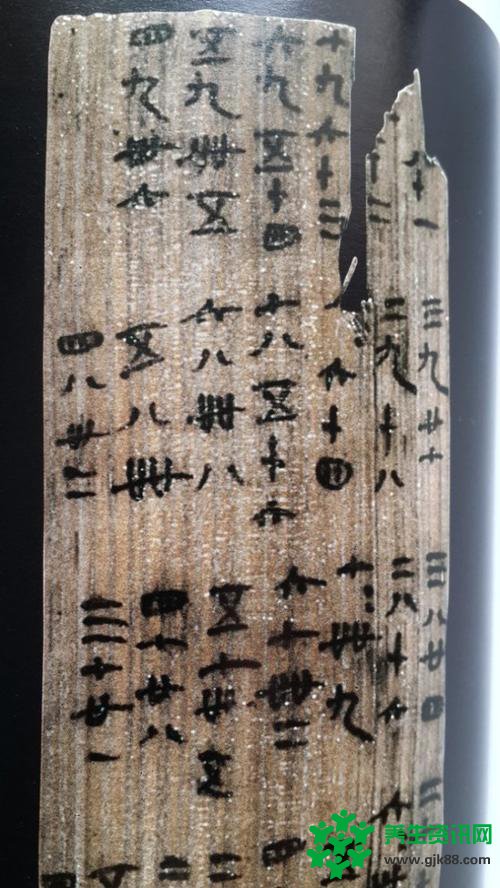 八十一
七九六十三
六九五十四
五九卌五
四九卅六
三九廿七
二九十八
六十四
七八五十六
六八卌八
五八卌
四八卅二
三八廿四
二八十六
七七卌九
六七卌二
五七卅五
四七廿八
三七廿一
养生资讯网
www.gjk88.com